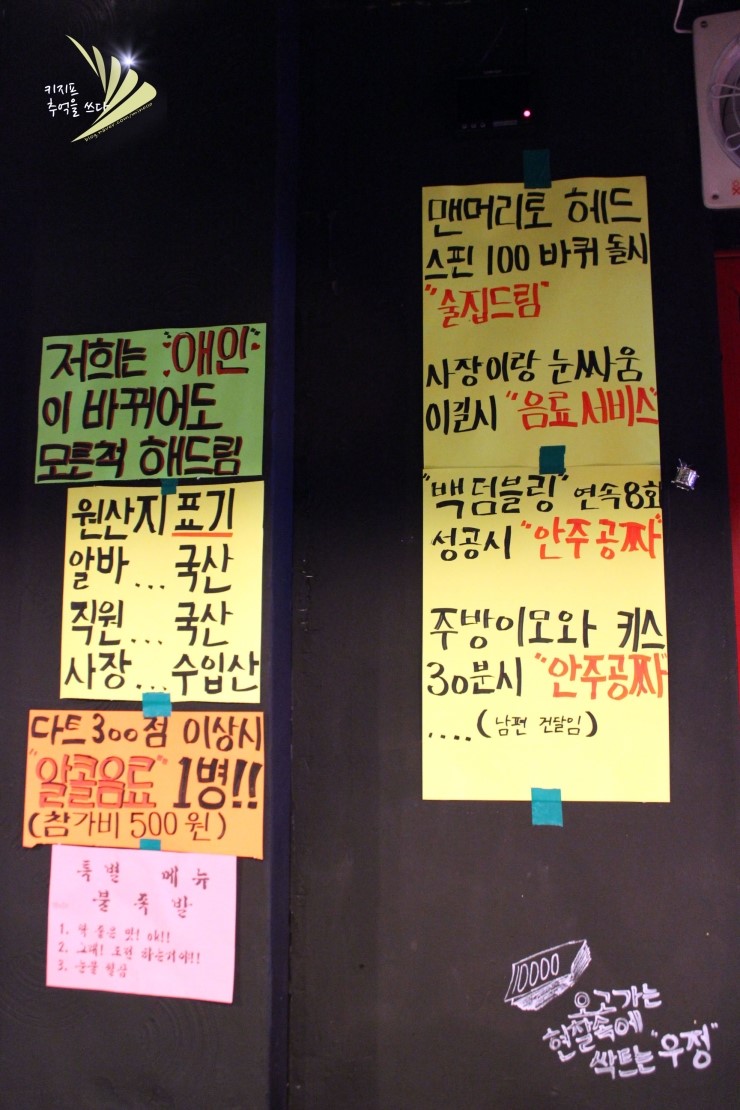 키지프
추억을 쓰다
저희는 "애인"
이 바뀌어도
모른척 해드림
원산지 표기
알바... 국산
직원... 국산
사장... 수입산
다트 300점 이상시
"알콜음료" 1병!!
(참가비 500원)
특별 메뉴
불족발
1. 딱 좋은 맛! ok!!
2. 그래! 도전 하는거야!!
3. 눈물 찔끔
맨머리로 헤드
스핀 100바퀴 돌시
"술집드림"
사장이랑 눈싸움
이길시 "음료서비스"
"백덤블링" 연속8회
성공시 "안주공짜"
주방이모와 키스
30분시 "안주공짜"
....(남편 건달임)
10000
오고가는
현찰속에
싹트는 "우정"